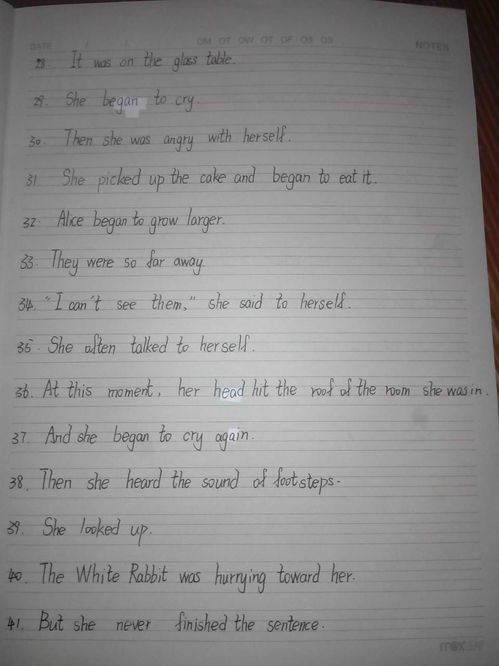 DATE / /
NOTES
28. It was on the glass table.
29. She began to cry.
30. Then she was angry with herself.
31. She picked up the cake and began to eat it.
32. Alice began to grow larger.
33. They were so far away.
34. "I can't see them," she said to herself.
35. She often talked to herself.
36. At this moment, her head hit the roof of the room she was in.
37. And she began to cry again.
38. Then she heard the sound of footsteps.
39. She looked up.
40. The White Rabbit was hurrying toward her.
41. But she never finished the sentence.